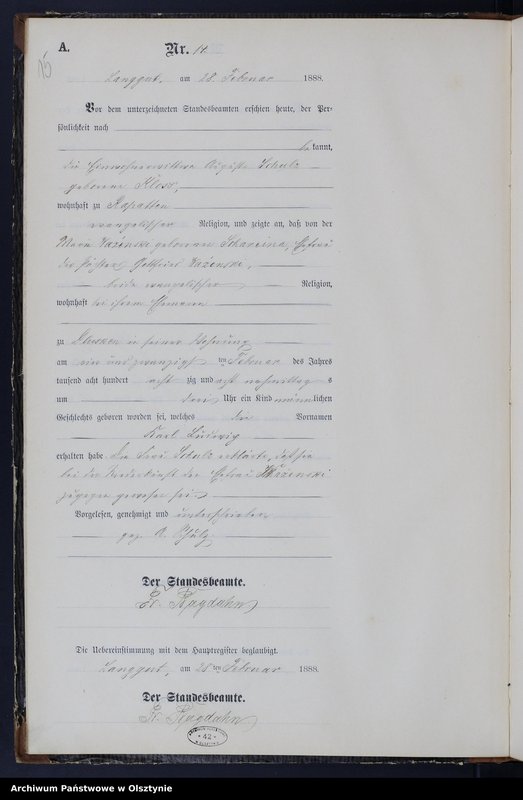 A.
Nr. 14
15
Langgut, am 28. Februar 1888.
Vor dem unterzeichneten Standesbeamten erschien heute, der Per-
sönlichkeit nach
bekannt,
die Einwohnerwittwe Auguste Schulz
geborene Kloss,
wohnhaft zu
evangelischer Religion, und zeigte an, daß von der
geborenen Ehefrau
des Gottfried
beide evangelischer Religion,
wohnhaft bei ihrem Ehemann
zu in seiner Wohnung
am ein und zwanzigsten ten Februar des Jahres
tausend acht hundert acht zig und acht nachmittags
um drei Uhr ein Kind männlichen
Geschlechts geboren worden sei, welches die Vornamen
Karl Ludwig
erhalten habe. Die Frau Schulz erklärte, daß sie
bei der Niederkunft der Ehefrau
zugegen gewesen sei.
Vorgelesen, genehmigt und unterschrieben
gez. A. Schulz
Der Standesbeamte.
Fr. Kagdahn
Die Uebereinstimmung mit dem Hauptregister beglaubigt.
Langgut, am 28 ten Februar 1888.
Der Standesbeamte.
Fr. Kagdahn
* 42 *
Archiwum Państwowe w Olsztynie